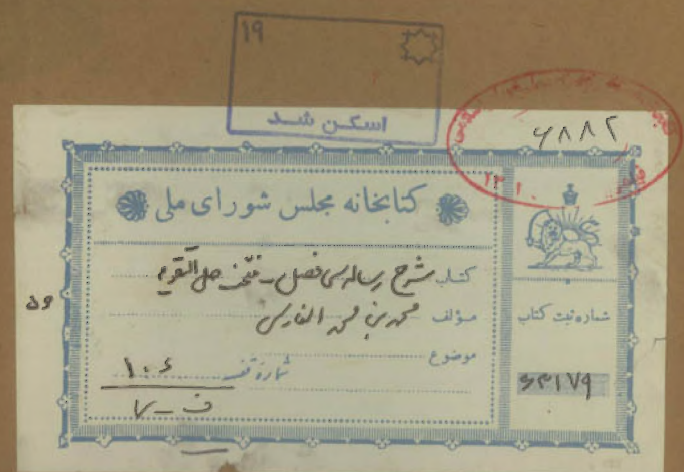 ۱۹
اسکن شد
۶۸۸۲
۱۳۱۰
کتابخانه مجلس شورای ملی
کتاب شرح رساله سی فصل - منتخب حل التقویم
مؤلف محمد بن محمد الفارسی
موضوع
شماره قفسه ۱۰۶
شماره ثبت کتاب
۶۳۱۷۹